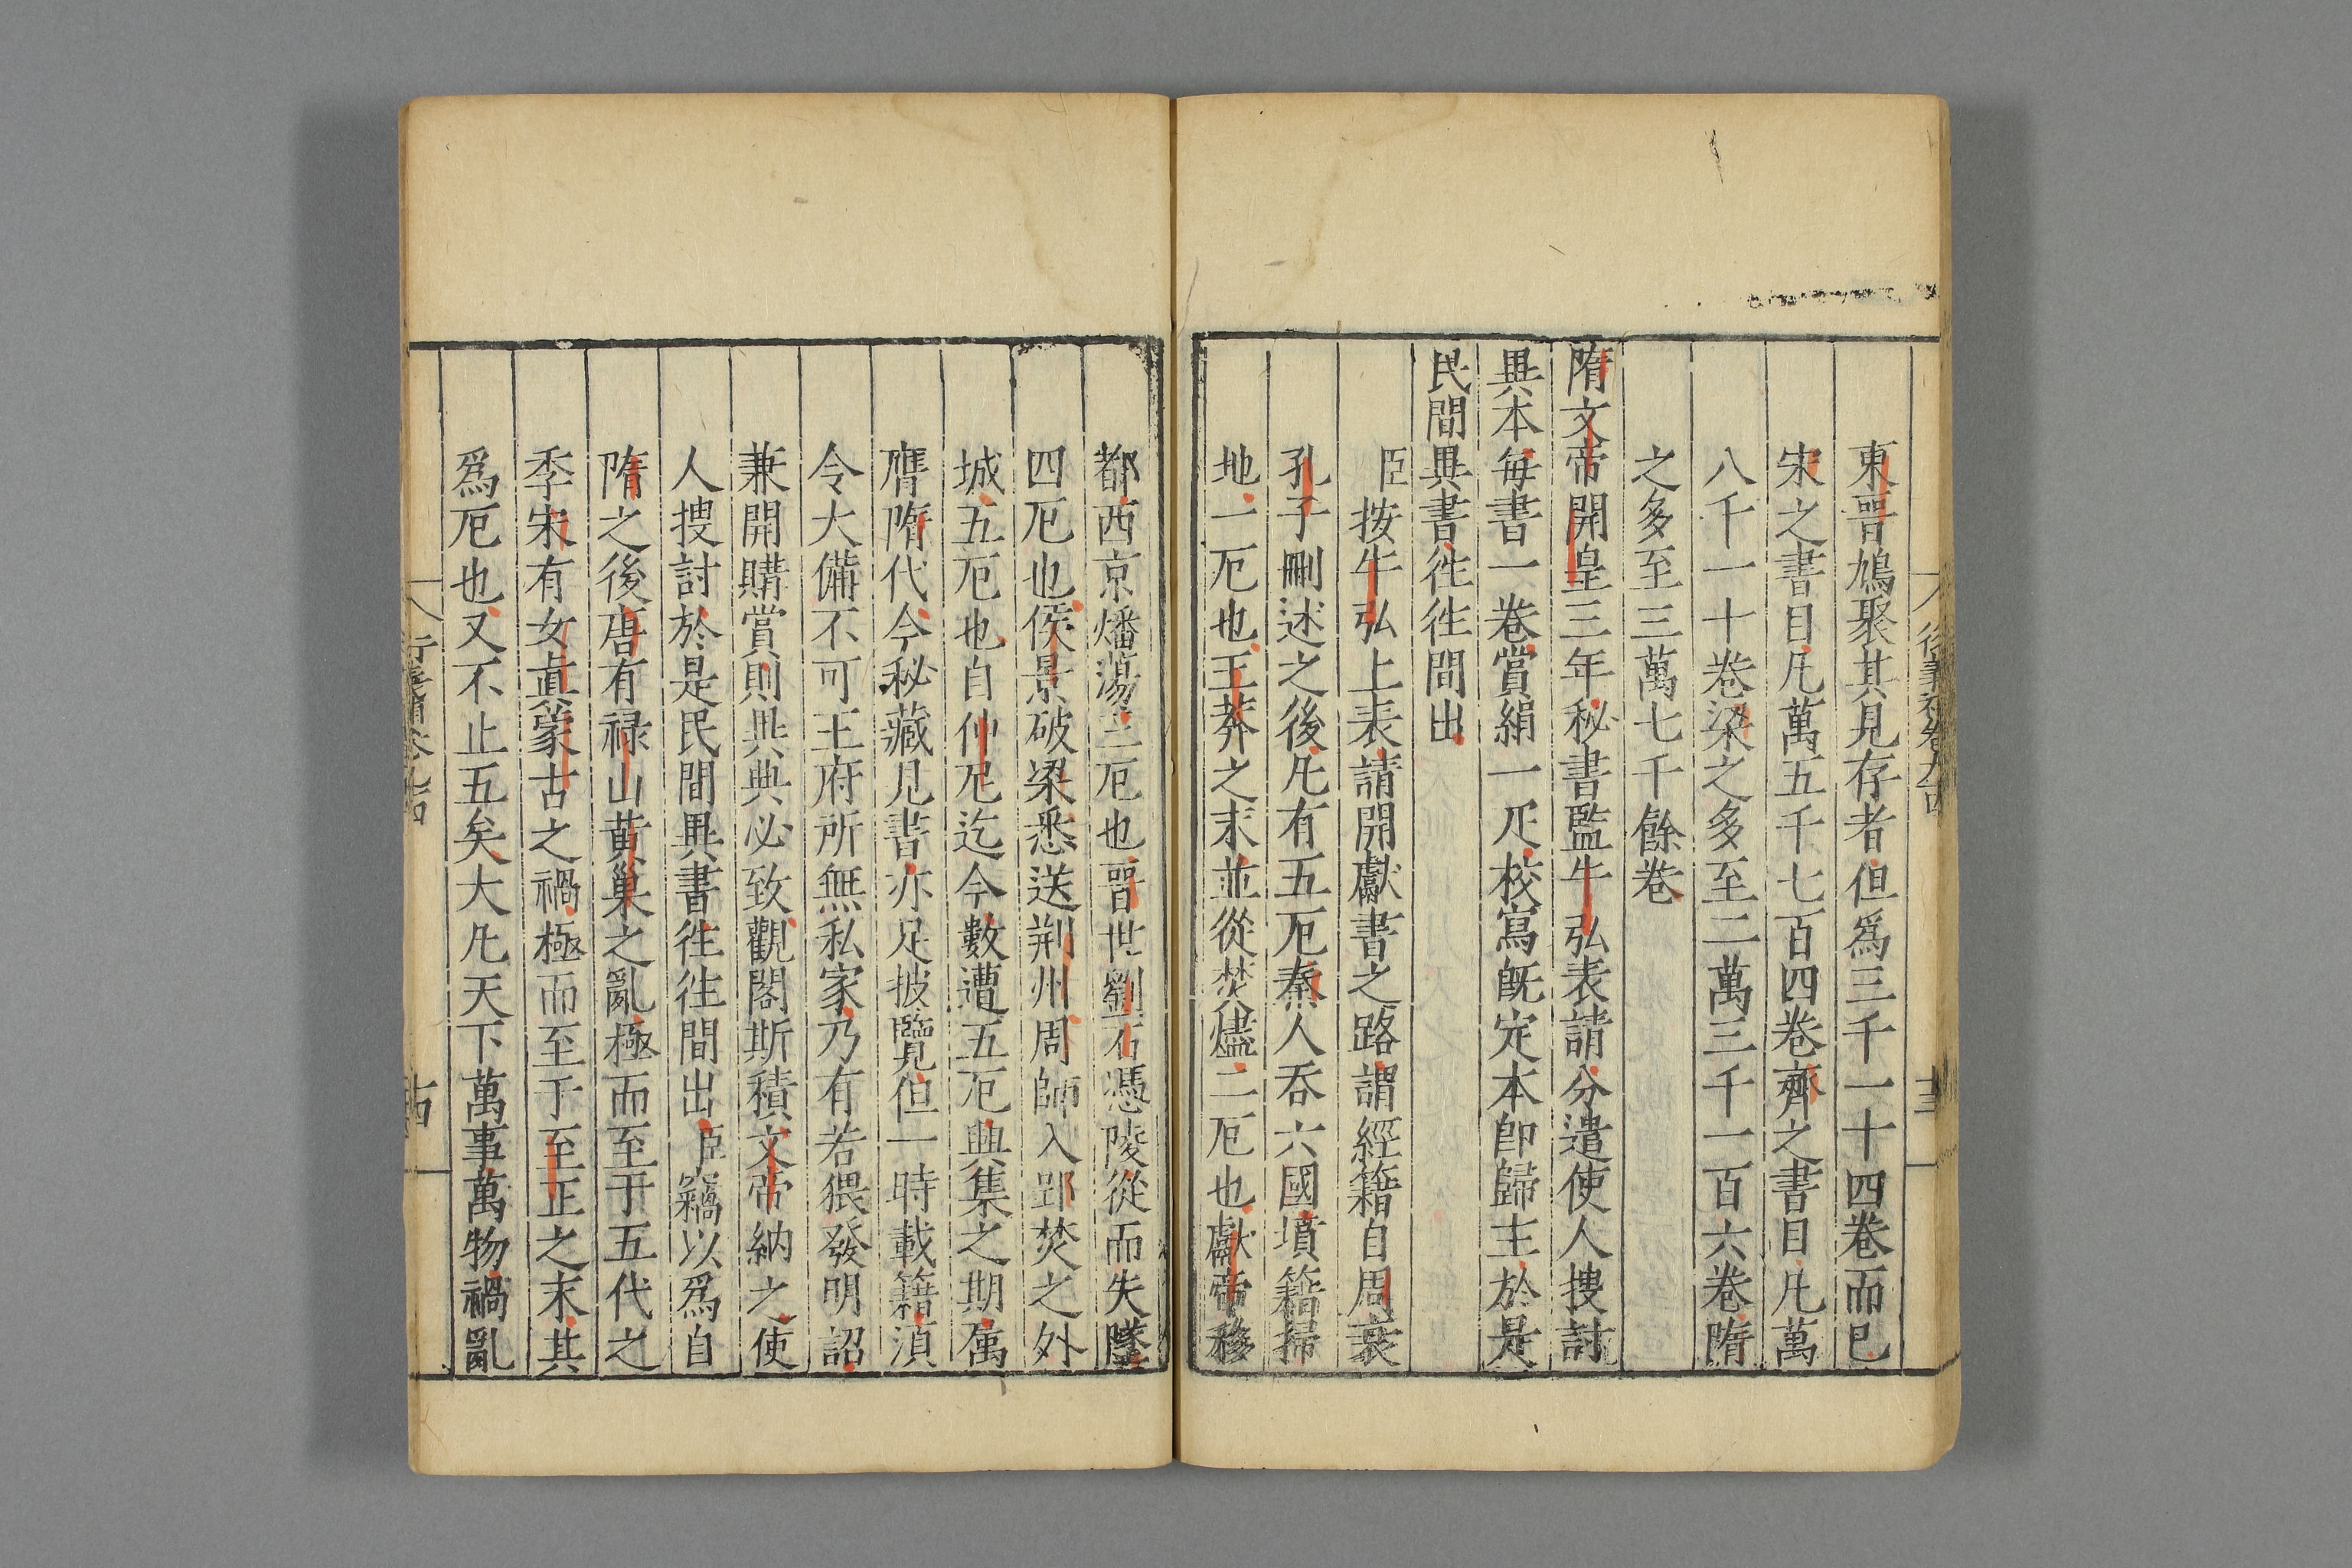 東晉鳩聚其見存者但爲三千一十四卷而巳
宋之書目凡萬五千七百四卷齊之書目凡萬
八千一十卷梁之多至二萬三千一百六卷隋
之多至三萬七千餘卷
隋文帝開皇三年秘書監牛弘表請分遣使人搜討
異本每書一卷賞絹一疋校寫旣定本卽歸主於是
民間異書徃徃間出
臣按牛弘上表請開獻書之路謂經籍自周衰
孔子刪述之後凡有五厄秦人吞六國墳籍掃
地一厄也王莽之末並從焚燼二厄也獻帝移
都西京燔蕩三厄也晉世劉石憑陵從而失墜
四厄也侯景破梁悉送荆州周師入郢焚之外
城五厄也自仲尼迄今數遭五厄興集之期属
膺隋代今秘藏見書亦足披覽但一時載籍湏
令大備不可王府所無私家乃有若猥發明詔
兼開購賞則異典必致觀閣斯積文帝納之使
人搜討於是民間異書徃徃間出臣竊以爲自
隋之後唐有祿山黃巢之亂極而至于五代之
季宋有女眞蒙古之禍極而至于至正之末其
爲厄也又不止五矣大凡天下萬事萬物禍亂